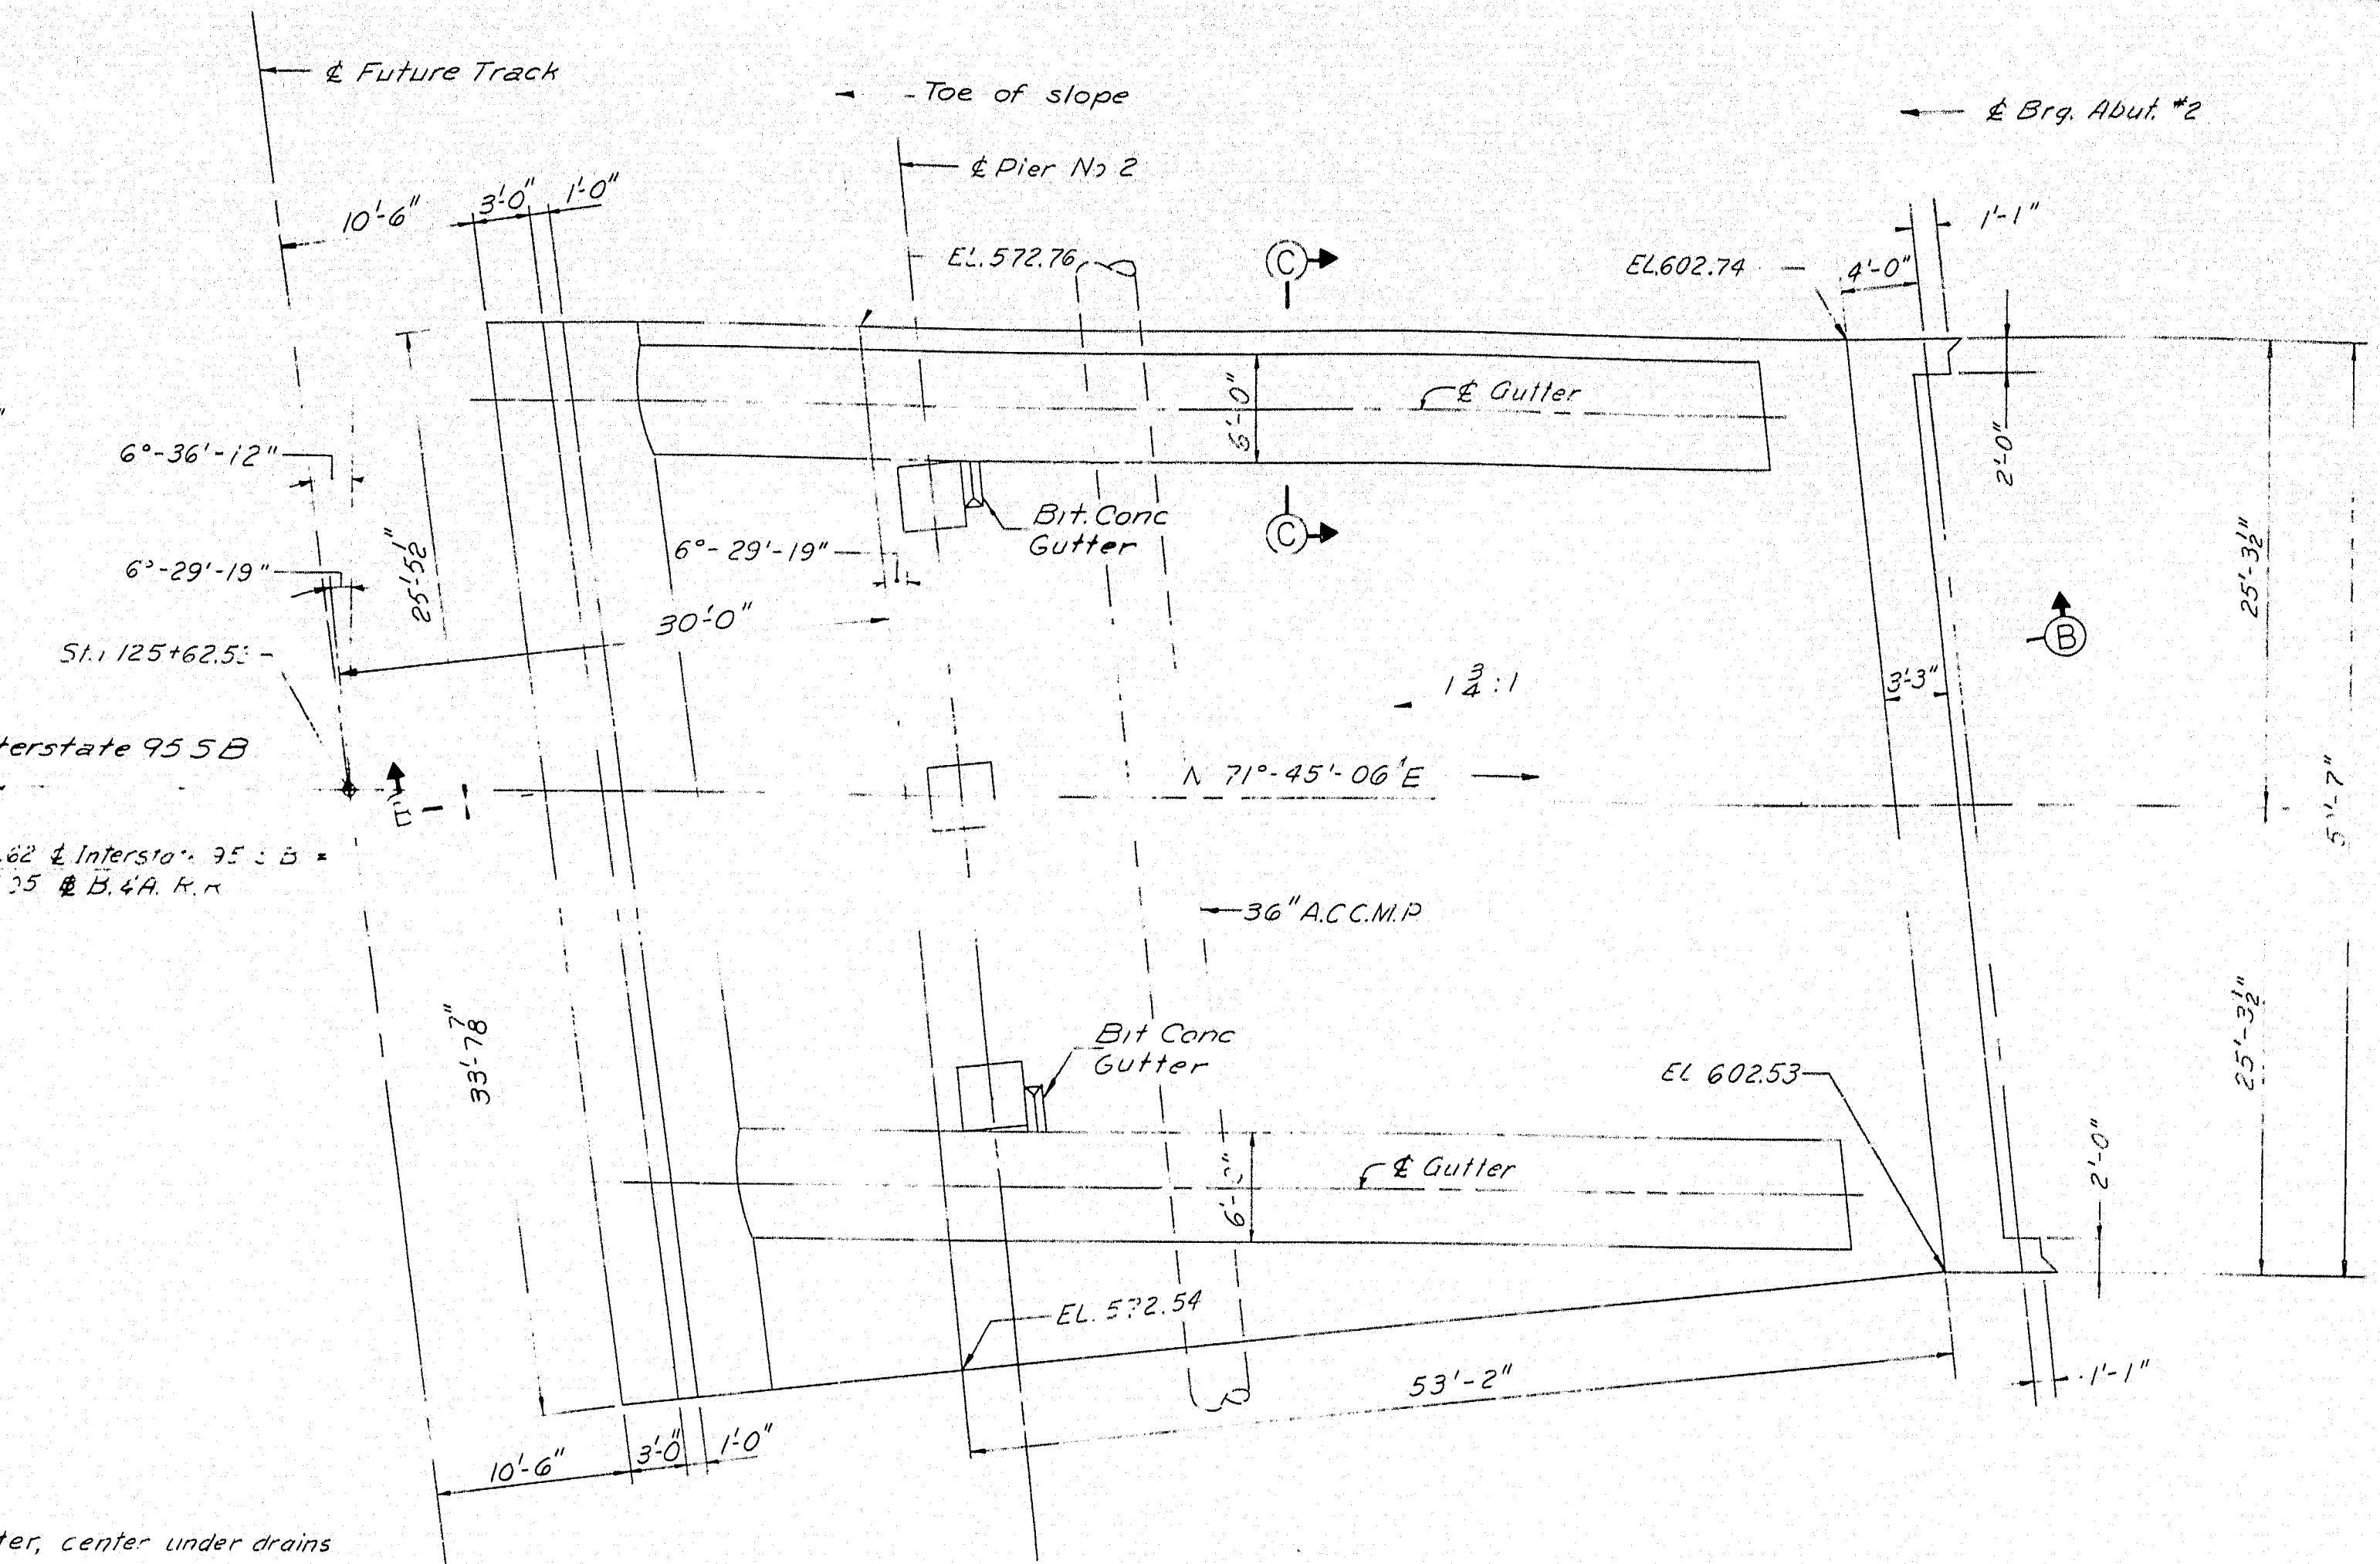 ℄ Future Track
Toe of slope
℄ Brg. Abut. #2
℄ Pier No 2
10'-6"
3'-0"
1'-0"
1'-1"
EL. 572.76
C
EL. 602.74
4'-0"
6'-0"
℄ Gutter
6°-36'-12"
2'-0"
Bit. Conc
Gutter
C
6°-29'-19"
6°-29'-19"
25'-5 1/2"
25'-3 1/2"
30'-0"
B
125+62.5
1 3/4 : 1
3'-3"
terstate 95 SB
N 71°-45'-06"E
E
-7"
.62 ℄ Intersta 95 B =
℄ B.&A. R.R
36" A.C.C.M.P
33'-7 7/8"
25'-3 1/2"
Bit Conc
Gutter
EL 602.53
2'-0"
℄ Gutter
6'-
EL. 572.54
53'-2"
1'-1"
10'-6"
3'-0"
1'-0"
ter, center under drains